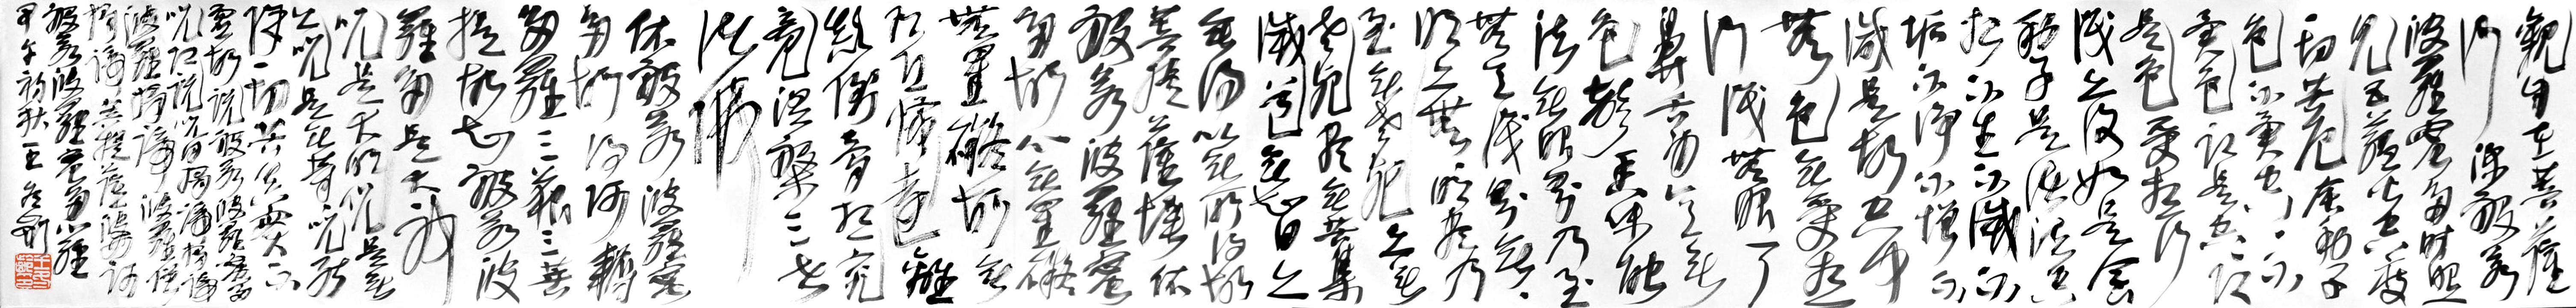 觀自在菩薩
行深般若
波羅蜜多時照
見五蘊皆空度
一切苦厄舍利子
色不異空空不
異色色即是空空即
是色受想行
識亦復如是舍
利子是諸法空
相不生不滅不
垢不淨不增不
減是故空中
無色無受想
行識無眼耳
鼻舌身意無
色聲香味觸
法無眼界乃至
無意識界無
明亦無無明盡乃
至無老死亦無
老死盡無苦集
滅道無智亦
無得以無所得故
菩提薩埵依
般若波羅蜜
多故心無罣礙
無罣礙故無
有恐怖遠離
顛倒夢想究
竟涅槃三世
諸佛
依般若波羅蜜
多故得阿耨
多羅三藐三菩
提故知般若波
羅蜜多是大神
咒是大明咒是無
上咒是無等等咒能
除一切苦真實不
虛故說般若波羅蜜多
咒即說咒曰揭諦揭諦
波羅揭諦波羅僧
揭諦菩提薩婆訶
般若波羅蜜多心經
甲午初秋王